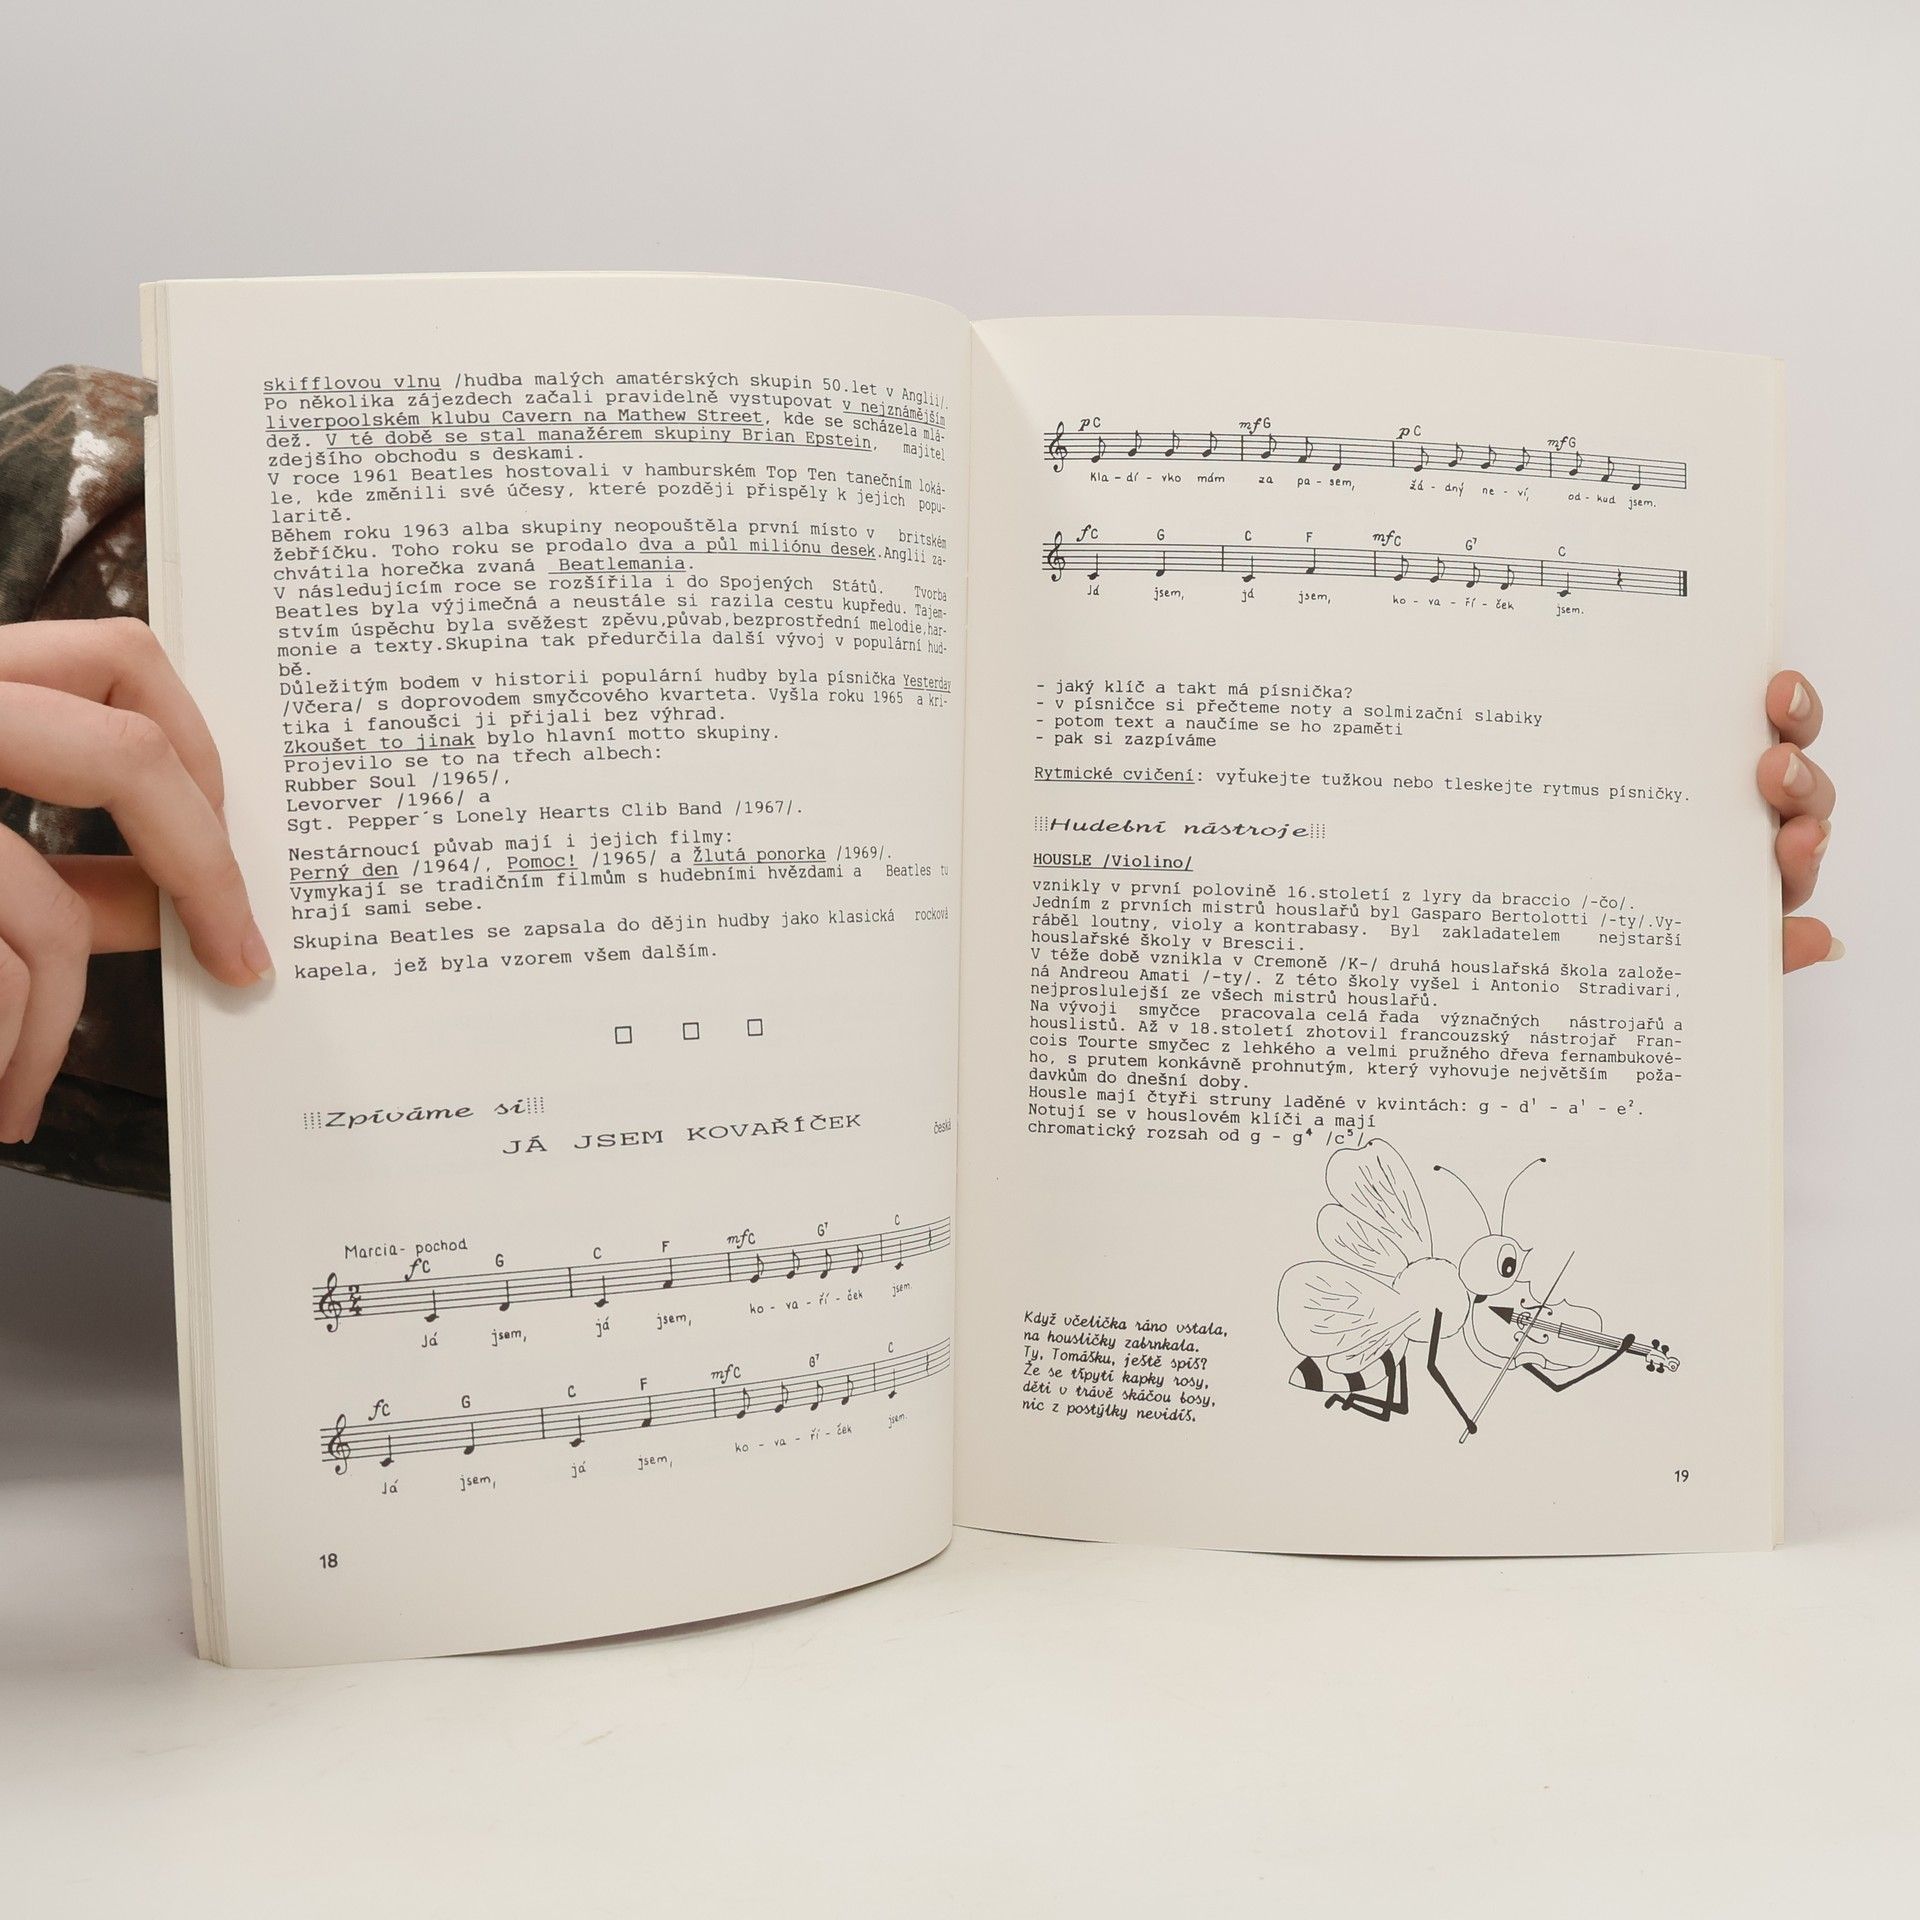 skifflovou vlnu /hudba malých amatérských skupin 50.let v Anglii/.
Po několika zájezdech začali pravidelně vystupovat v nejznámějším
liverpoolském klubu Cavern na Mathew Street, kde se scházela mlá-
dež. V té době se stal manažérem skupiny Brian Epstein, majitel
zdejšího obchodu s deskami.
V roce 1961 Beatles hostovali v hamburském Top Ten tanečním loká-
le, kde změnili své účesy, které později přispěly k jejich popu-
laritě.
Během roku 1963 alba skupiny neopouštěla první místo v britském
žebříčku. Toho roku se prodalo dva a půl miliónu desek.Anglii za-
chvátila horečka zvaná Beatlemania.
V následujícím roce se rozšířila i do Spojených Států. Tvorba
Beatles byla výjimečná a neustále si razila cestu kupředu. Tajem-
stvím úspěchu byla svěžest zpěvu,půvab,bezprostřední melodie,har-
monie a texty.Skupina tak předurčila další vývoj v populární hud-
bě.
Důležitým bodem v historii populární hudby byla písnička Yesterday
/Včera/ s doprovodem smyčcového kvarteta. Vyšla roku 1965 a kri-
tika i fanoušci ji přijali bez výhrad.
Zkoušet to jinak bylo hlavní motto skupiny.
Projevilo se to na třech albech:
Rubber Soul /1965/,
Levorver /1966/ a
Sgt. Pepper´s Lonely Hearts Clib Band /1967/.
Nestárnoucí půvab mají i jejich filmy:
Perný den /1964/, Pomoc! /1965/ a Žlutá ponorka /1969/.
Vymykají se tradičním filmům s hudebními hvězdami a Beatles tu
hrají sami sebe.
Skupina Beatles se zapsala do dějin hudby jako klasická rocková
kapela, jež byla vzorem všem dalším.
Zpíváme si
JÁ JSEM KOVAŘÍČEK česká
Marcia- pochod
fC G C F mfC G7 C
Já jsem, já jsem, ko - va - ří - ček jsem.
fC G C F mfC G7 C
Já jsem, já jsem, ko - va - ří - ček jsem.
18
pC mfG pC mfG
Kla - dí - vko mám za pa - sem, žá - dný ne - ví, od - kud jsem.
fC G C F mfC G7 C
Já jsem, já jsem, ko - va - ří - ček jsem.
- jaký klíč a takt má písnička?
- v písničce si přečteme noty a solmizační slabiky
- potom text a naučíme se ho zpaměti
- pak si zazpíváme
Rytmické cvičení: vyťukejte tužkou nebo tleskejte rytmus písničky.
Hudební nástroje
HOUSLE /Violino/
vznikly v první polovině 16.století z lyry da braccio /-čo/.
Jedním z prvních mistrů houslařů byl Gasparo Bertolotti /-ty/.Vy-
ráběl loutny, violy a kontrabasy. Byl zakladatelem nejstarší
houslařské školy v Brescii.
V téže době vznikla v Cremoně /K-/ druhá houslařská škola založe-
ná Andreou Amati /-ty/. Z této školy vyšel i Antonio Stradivari,
nejproslulejší ze všech mistrů houslařů.
Na vývoji smyčce pracovala celá řada význačných nástrojařů a
houslistů. Až v 18.století zhotovil francouzský nástrojař Fran-
cois Tourte smyčec z lehkého a velmi pružného dřeva fernambukové-
ho, s prutem konkávně prohnutým, který vyhovuje největším poža-
davkům do dnešní doby.
Housle mají čtyři struny laděné v kvintách: g - d¹ - a¹ - e².
Notují se v houslovém klíči a mají
chromatický rozsah od g - g⁴ /c⁵/.
Když včelička ráno vstala,
na housličky zabrnkala.
Ty, Tomášku, ještě spíš?
Že se třpytí kapky rosy,
děti v trávě skáčou bosy,
nic z postýlky nevidíš.
19